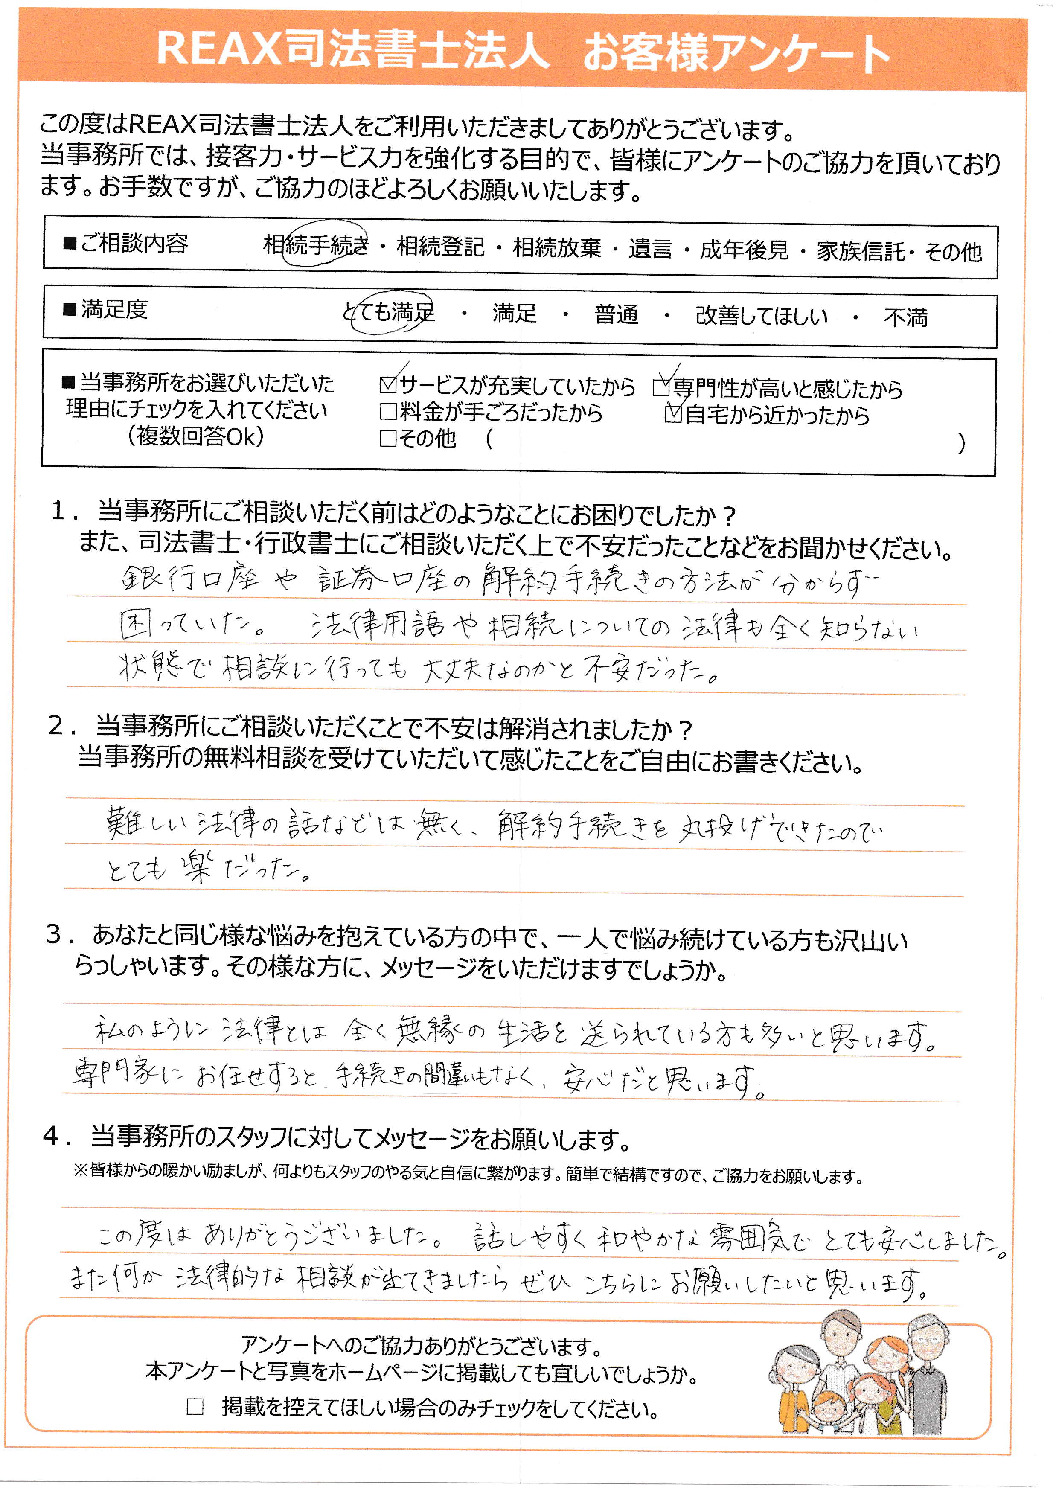 REAX司法書士法人 お客様アンケート
この度はREAX司法書士法人をご利用いただきましてありがとうございます。
当事務所では、接客力・サービス力を強化する目的で、皆様にアンケートのご協力を頂いており
ます。お手数ですが、ご協力のほどよろしくお願いいたします。
■ご相談内容 相続手続き・相続登記・相続放棄・遺言・成年後見・家族信託・その他
■満足度 とても満足 ・ 満足 ・ 普通 ・ 改善してほしい ・ 不満
■当事務所をお選びいただいた ☑サービスが充実していたから ☑専門性が高いと感じたから
理由にチェックを入れてください □料金が手ごろだったから ☑自宅から近かったから
（複数回答Ok） □その他 （ ）
１．当事務所にご相談いただく前はどのようなことにお困りでしたか？
また、司法書士・行政書士にご相談いただく上で不安だったことなどをお聞かせください。
銀行口座や証券口座の解約手続きの方法が分からず
困っていた。 法律用語や相続についての法律も全く知らない
状態で相談に行っても大丈夫なのかと不安だった。
２．当事務所にご相談いただくことで不安は解消されましたか？
当事務所の無料相談を受けていただいて感じたことをご自由にお書きください。
難しい法律の話などは無く、解約手続きを丸投げできたので
とても楽だった。
３．あなたと同じ様な悩みを抱えている方の中で、一人で悩み続けている方も沢山い
らっしゃいます。その様な方に、メッセージをいただけますでしょうか。
私のように法律とは全く無縁の生活を送られている方も多いと思います。
専門家にお任せすると、手続きの間違いもなく、安心だと思います。
４．当事務所のスタッフに対してメッセージをお願いします。
※皆様からの暖かい励ましが、何よりもスタッフのやる気と自信に繋がります。簡単で結構ですので、ご協力をお願いします。
この度はありがとうございました。 話しやすく和やかな雰囲気でとても安心しました。
また何か法律的な相談が出てきましたらぜひこちらにお願いしたいと思います。
アンケートへのご協力ありがとうございます。
本アンケートと写真をホームページに掲載しても宜しいでしょうか。
□ 掲載を控えてほしい場合のみチェックをしてください。